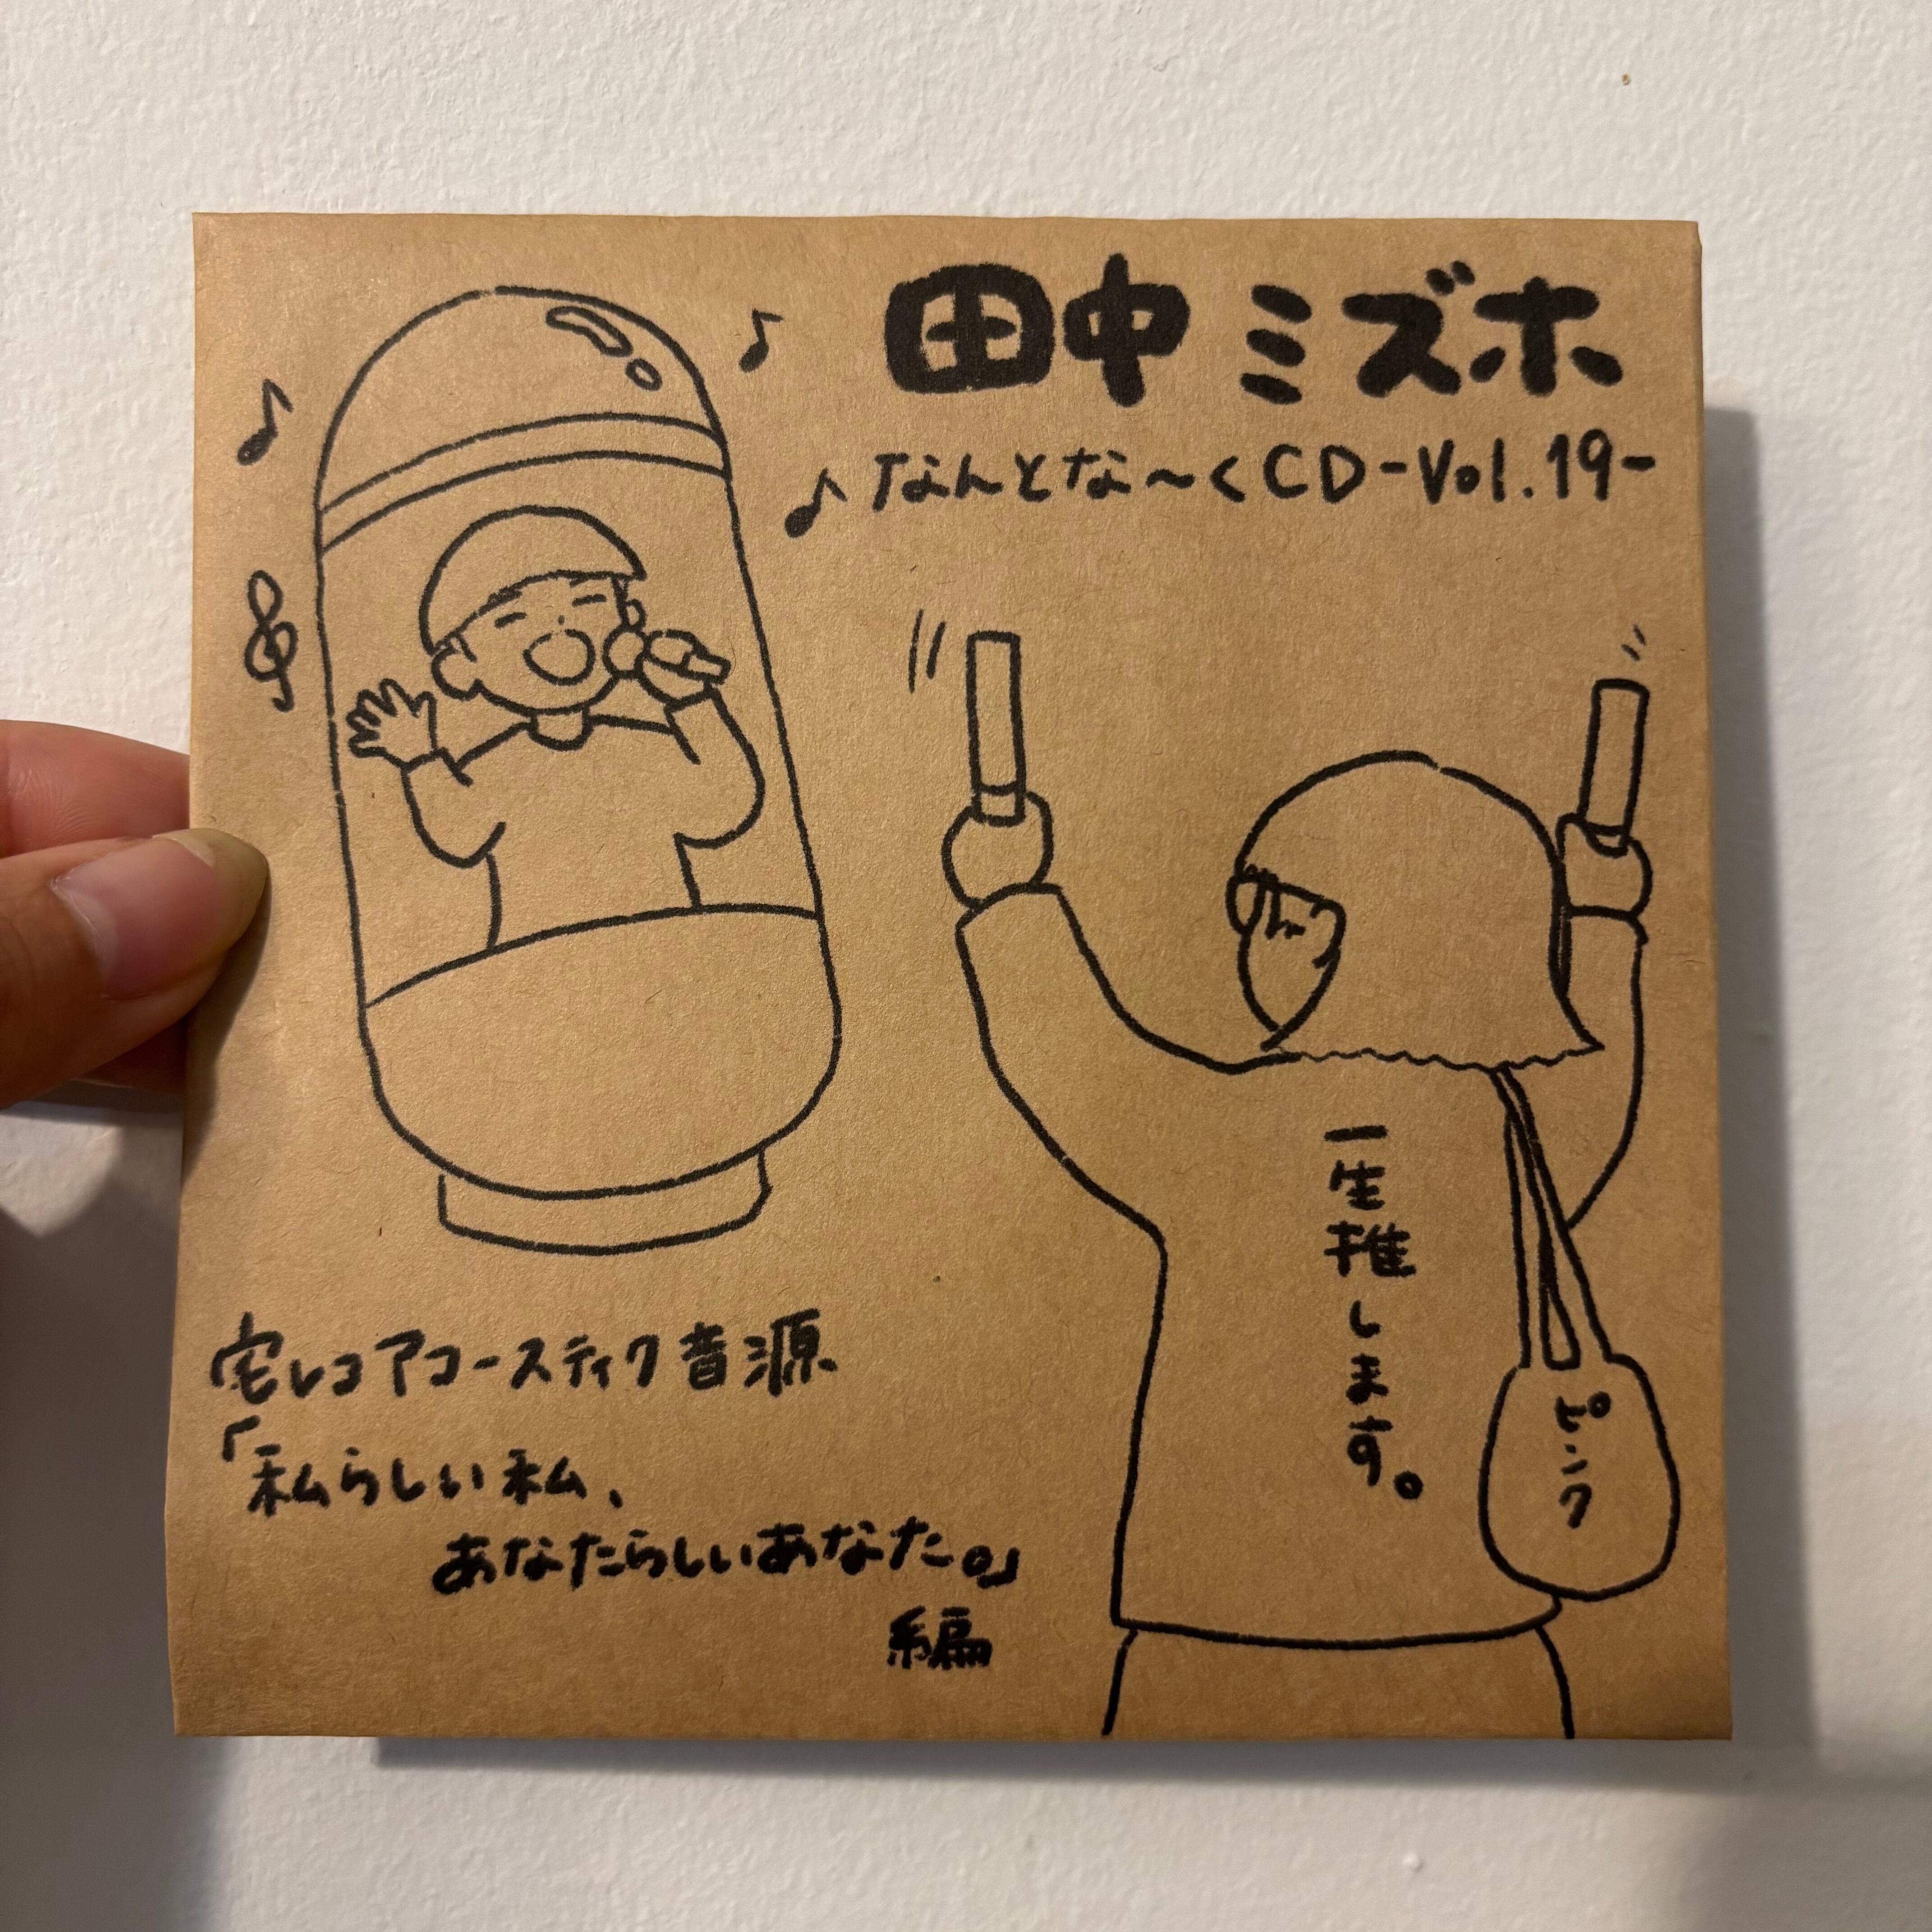 田中ミズホ
なんとな〜くCD-Vol.19-
一生推します。
ピンク
宅レコアコースティック音源
「私らしい私、
あなたらしいあなた。」
編